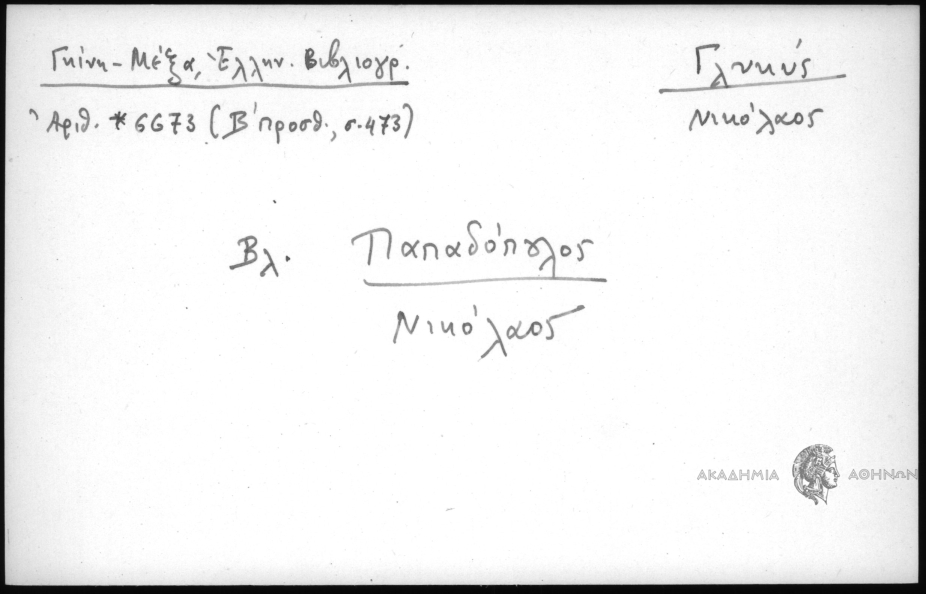 Γκίνη - Μέξα, Ἑλλην. Βιβλιογρ.
Ἀριθ. *6673 (Β΄ προσθ., σ. 473)
Γλυκύς
Νικόλαος
Βλ. Παπαδόπουλος
Νικόλαος
ΑΚΑΔΗΜΙΑ ΑΘΗΝΩΝ